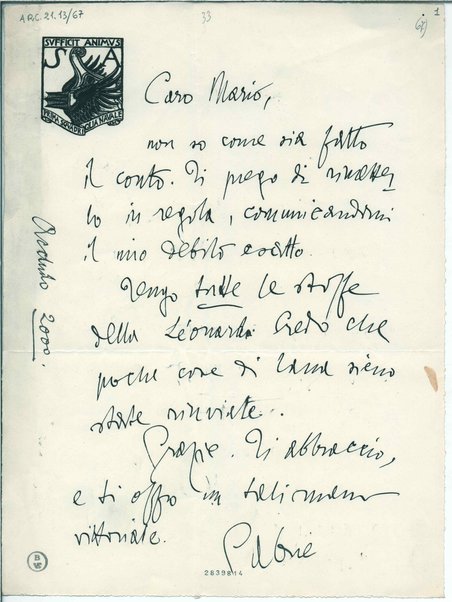 ARC. 21.13/67
33
1
SVFFICIT ANIMVS
S A
PRIMA SQVADRIGLIA NAVALE
Caro Mario,
non so come sia fatto
il conto. Ti prego di rimetter
lo in regola, comunicandomi
il mio debito esatto.
Tengo tutte le stoffe
della Léonarda. Credo che
poche cose di lana sieno
state rinviate.
Grazie. Ti abbraccio,
e ti offro un talismano
vittoriale.
Gabrie
2000.
2839814